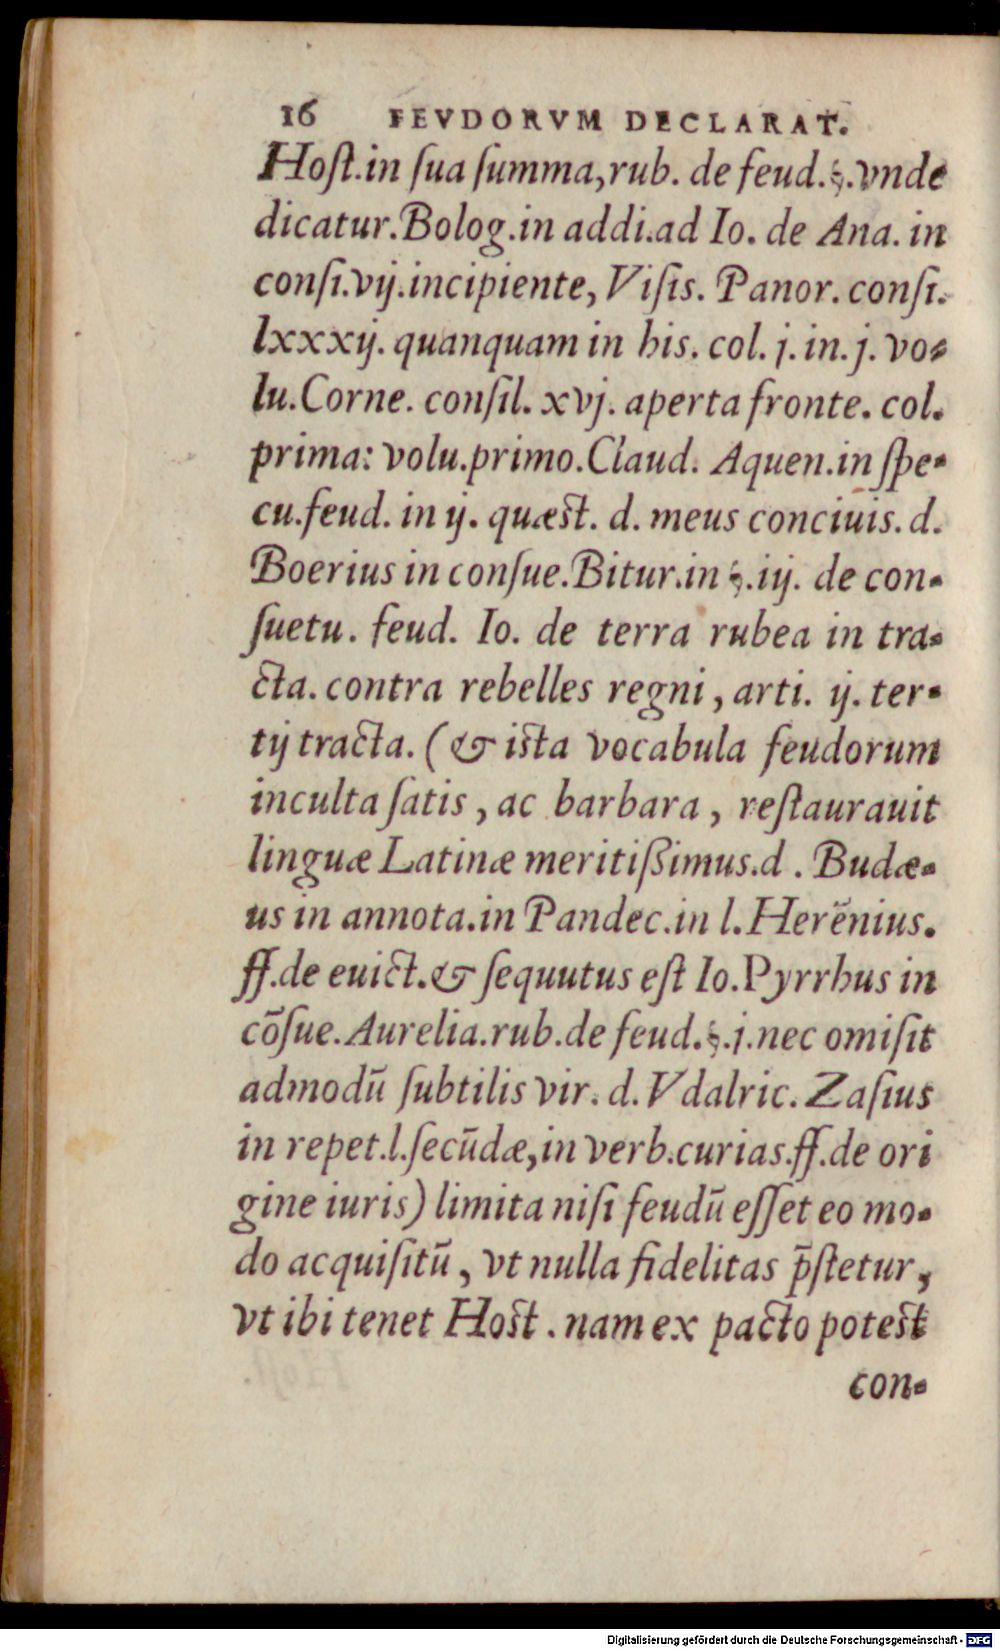 16 FEVDORVM DECLARAT.
Hoſt.in ſua ſumma,rub. de feud.§.vnde
dicatur.Bolog.in addi.ad Io. de Ana. in
conſi.vij.incipiente, Viſis. Panor. conſi.
lxxxij. quanquam in his. col. j. in. j. vo-
lu.Corne. conſil. xvj. aperta fronte. col.
prima: volu.primo.Claud. Aquen.in ſpe-
cu.feud. in ij. quæst. d. meus conciuis. d.
Boerius in conſue.Bitur.in §.iij. de con-
ſuetu. feud. Io. de terra rubea in tra-
cta. contra rebelles regni, arti. ij. ter-
tij tracta. (& ista vocabula feudorum
inculta ſatis, ac barbara, reſtaurauit
linguæ Latinæ meritißimus.d. Budæ-
us in annota.in Pandec.in l.Herēnius.
ff.de euict.& ſequutus eſt Io.Pyrrhus in
cōſue.Aurelia.rub.de feud.§.j.nec omiſit
admodū ſubtilis vir. d.Vdalric. Zaſius
in repet.l.ſecūdæ,in verb.curias.ff.de ori
gine iuris) limita niſi feudū eſſet eo mo-
do acquiſitū, vt nulla fidelitas p̄ſtetur,
vt ibi tenet Host. nam ex pacto potest
con-
Digitalisierung gefördert durch die Deutsche Forschungsgemeinschaft - DFG